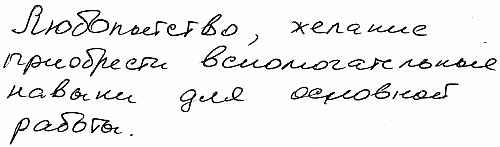 Любопытство, желание
приобрести вспомогательные
навыки для основной
работы.